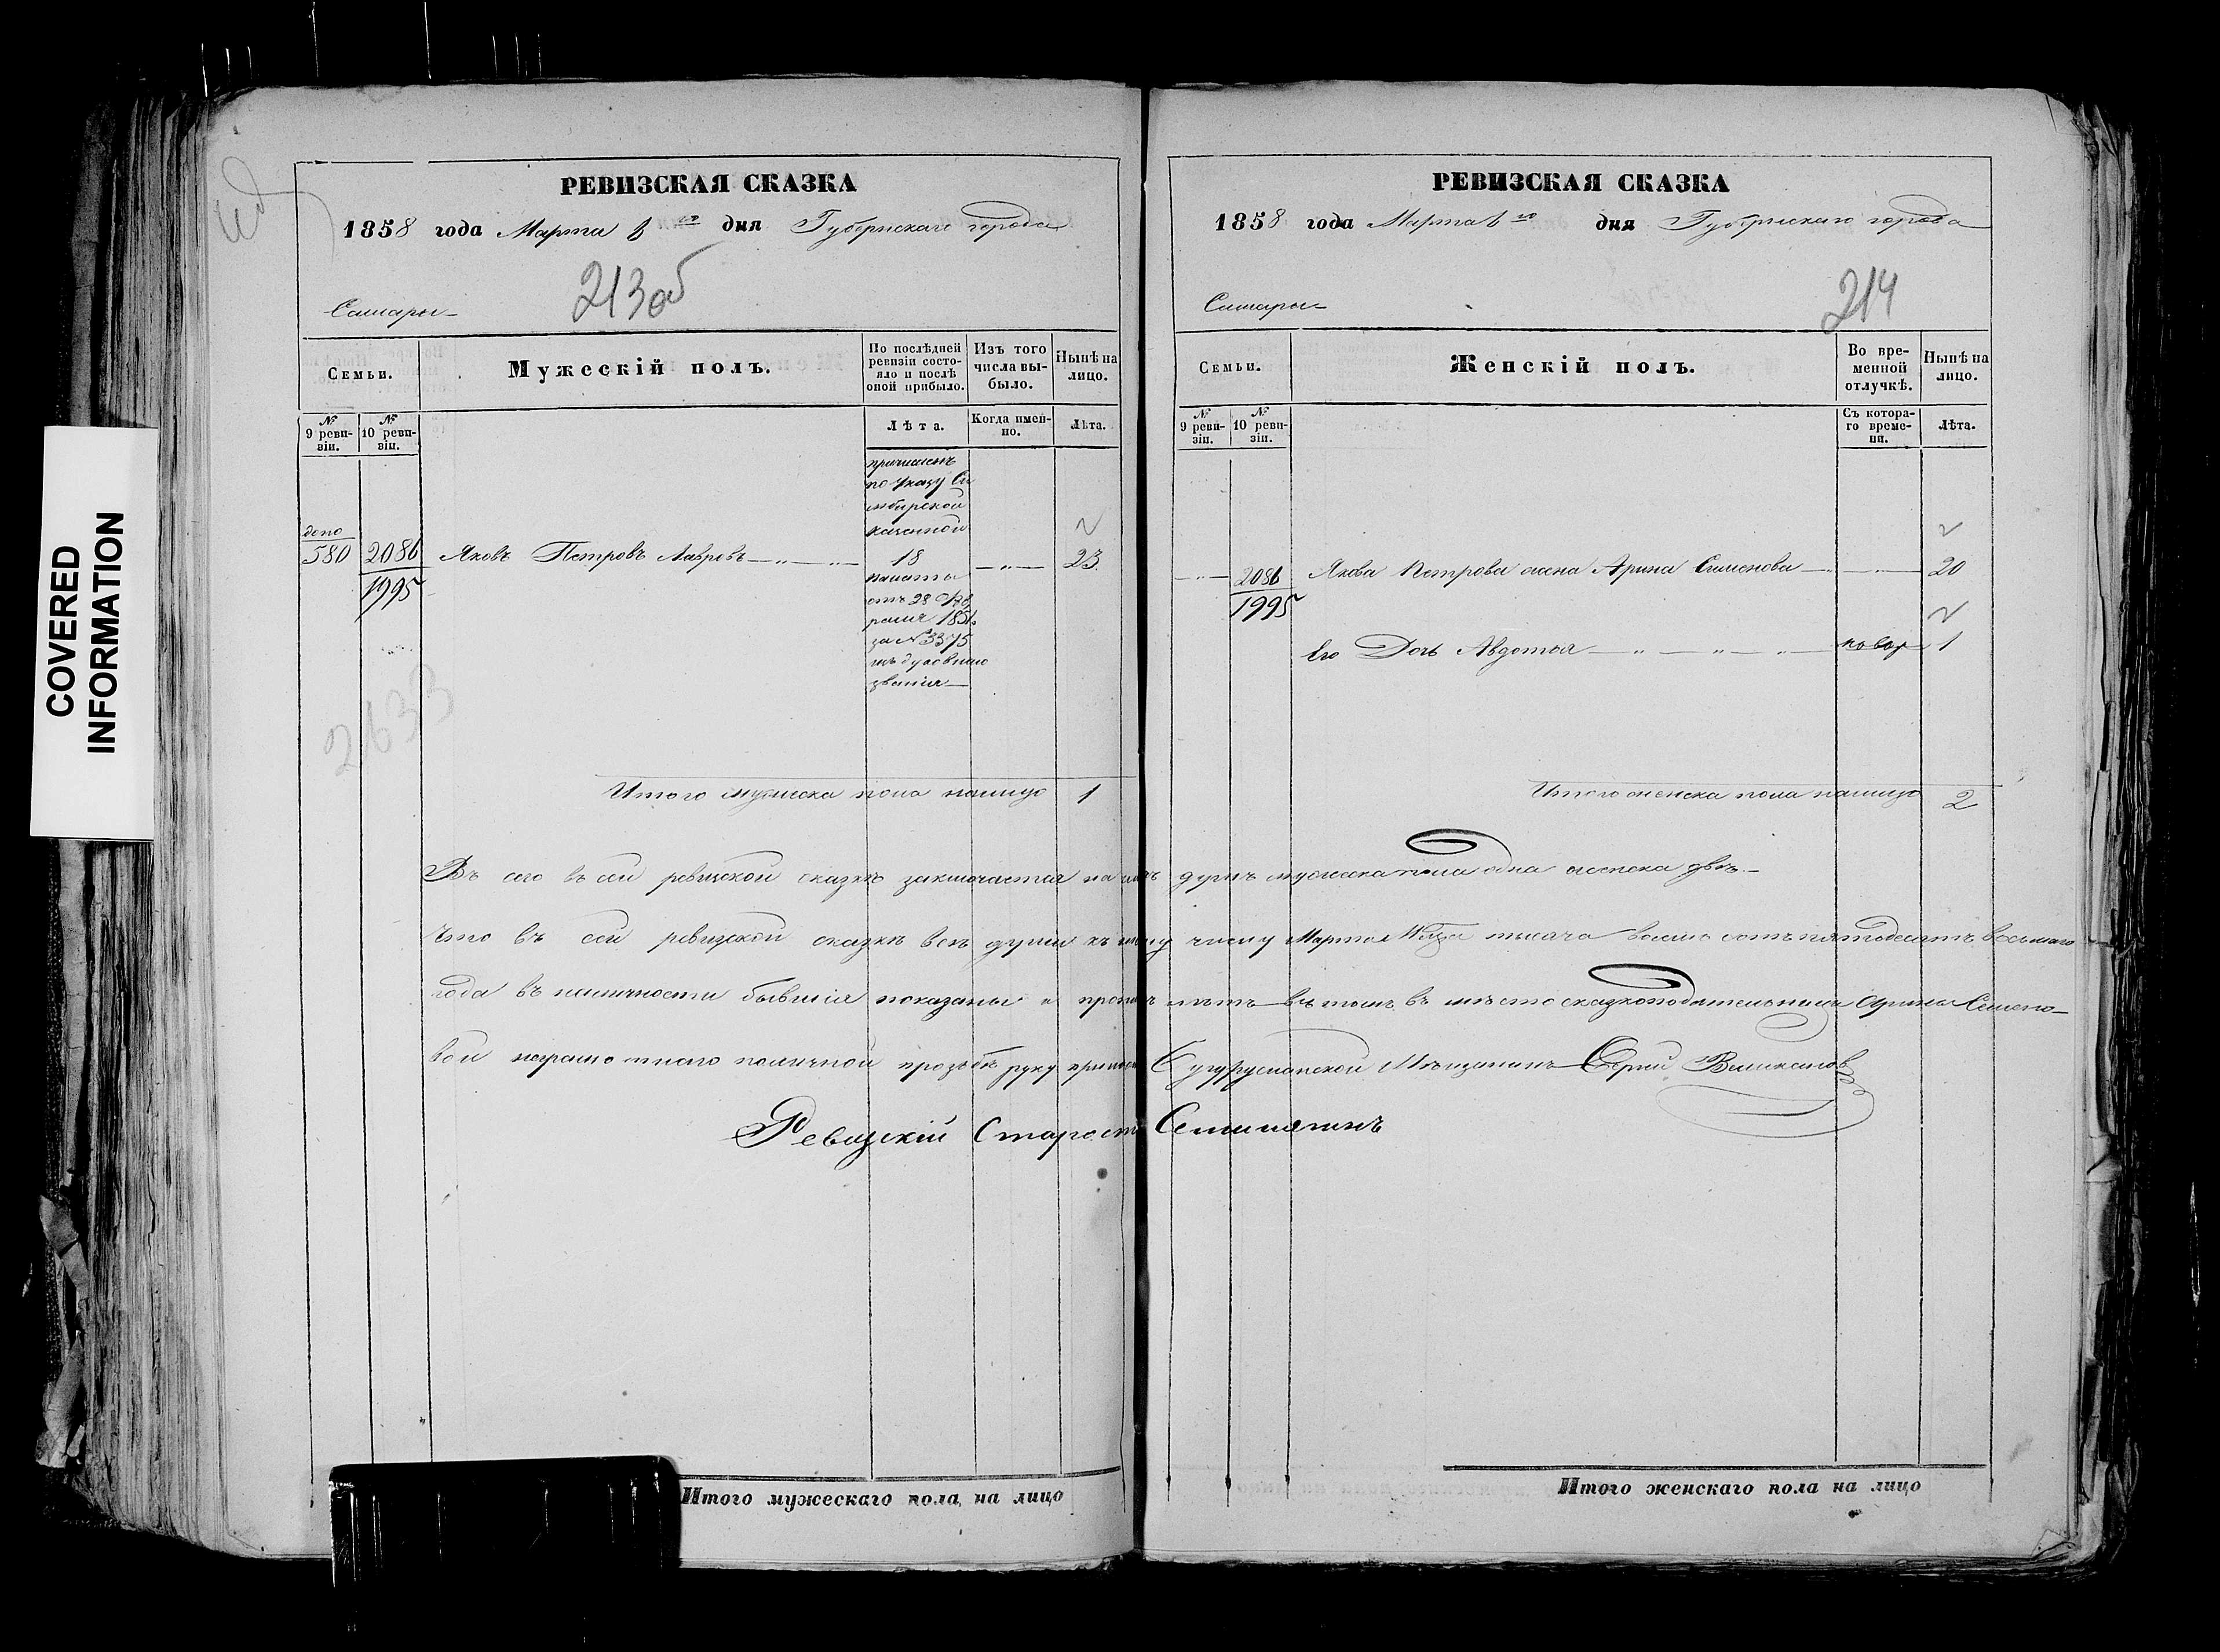 РЕВИЗСКАЯ СКАЗКА
1858 года Марта 6го дня Губернскаго города
213об
Самары
Семьи.
Мужескій полъ.
По послѣдней ревизіи состояло и послѣ оной прибыло.
Изъ того числа выбыло.
Нынѣ на лицо.
№ 9 ревизіи.
№ 10 ревизіи.
Лѣта.
Когда именно.
Лѣта.
причисленъ
по указу Си
мбирской
казенной
допо
580 2086 Яковъ Петровъ Лавровъ 18 23
1995
палаты
отъ 28 Фев
раля 185
за №3375
изъ духовнаго
званія
2633
Итого мужеска пола налицо 1
РЕВИЗСКАЯ СКАЗКА
1858 года Марта 6го дня Губернскаго города
214
Самары
Семьи.
Женскій полъ.
Во временной отлучкѣ.
Нынѣ на лицо.
№ 9 ревизіи.
№ 10 ревизіи.
Съ котораго времени.
Лѣта.
2086 Якова Петрова жена Арина Семенова 20
1995
Его Дочь Авдотья 1
Итого женска пола налицо 2
Въ сей ревизской сказкѣ заключается на лицо душъ мужеска пола одна женска двѣ
Что въ сей ревизской сказкѣ всѣ души къ числу Марта тысяча восемь сотъ пятьдесятъ восьмаго
года въ наличности бывшія показаны и нѣтъ въ томъ въ мѣсто сказкоподательницы Арины Семено-
вой неграмотного поличной прозьбѣ руку Бугурусланской Мѣщанинъ Сергій
Ревизскій Староста
Итого мужескаго пола на лицо
Итого женскаго пола на лицо
COVERED
INFORMATION